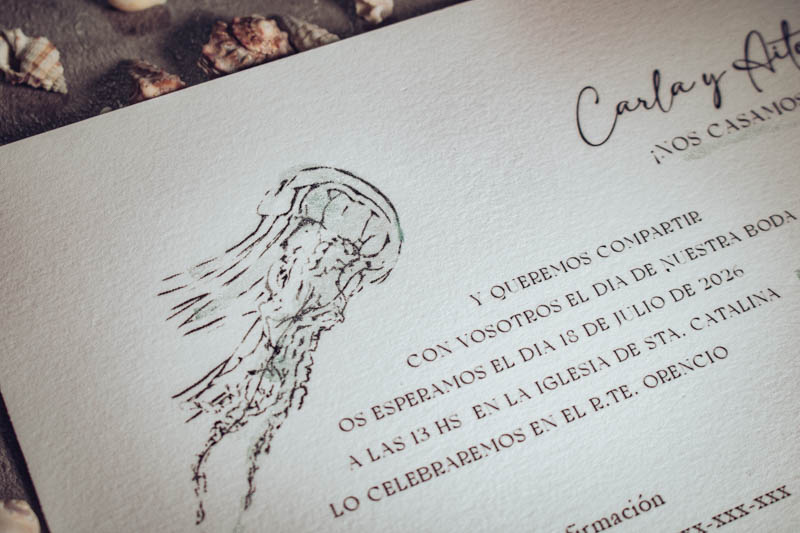 Carla y
¡NOS CASAMOS
Y QUEREMOS COMPARTIR
CON VOSOTROS EL DIA DE NUESTRA BODA
OS ESPERAMOS EL DIA 18 DE JULIO DE 2026
A LAS 13 HS EN LA IGLESIA DE STA. CATALINA
LO CELEBRAREMOS EN EL R.TE. ORENCIO
firmación
XX-XXX-XXX